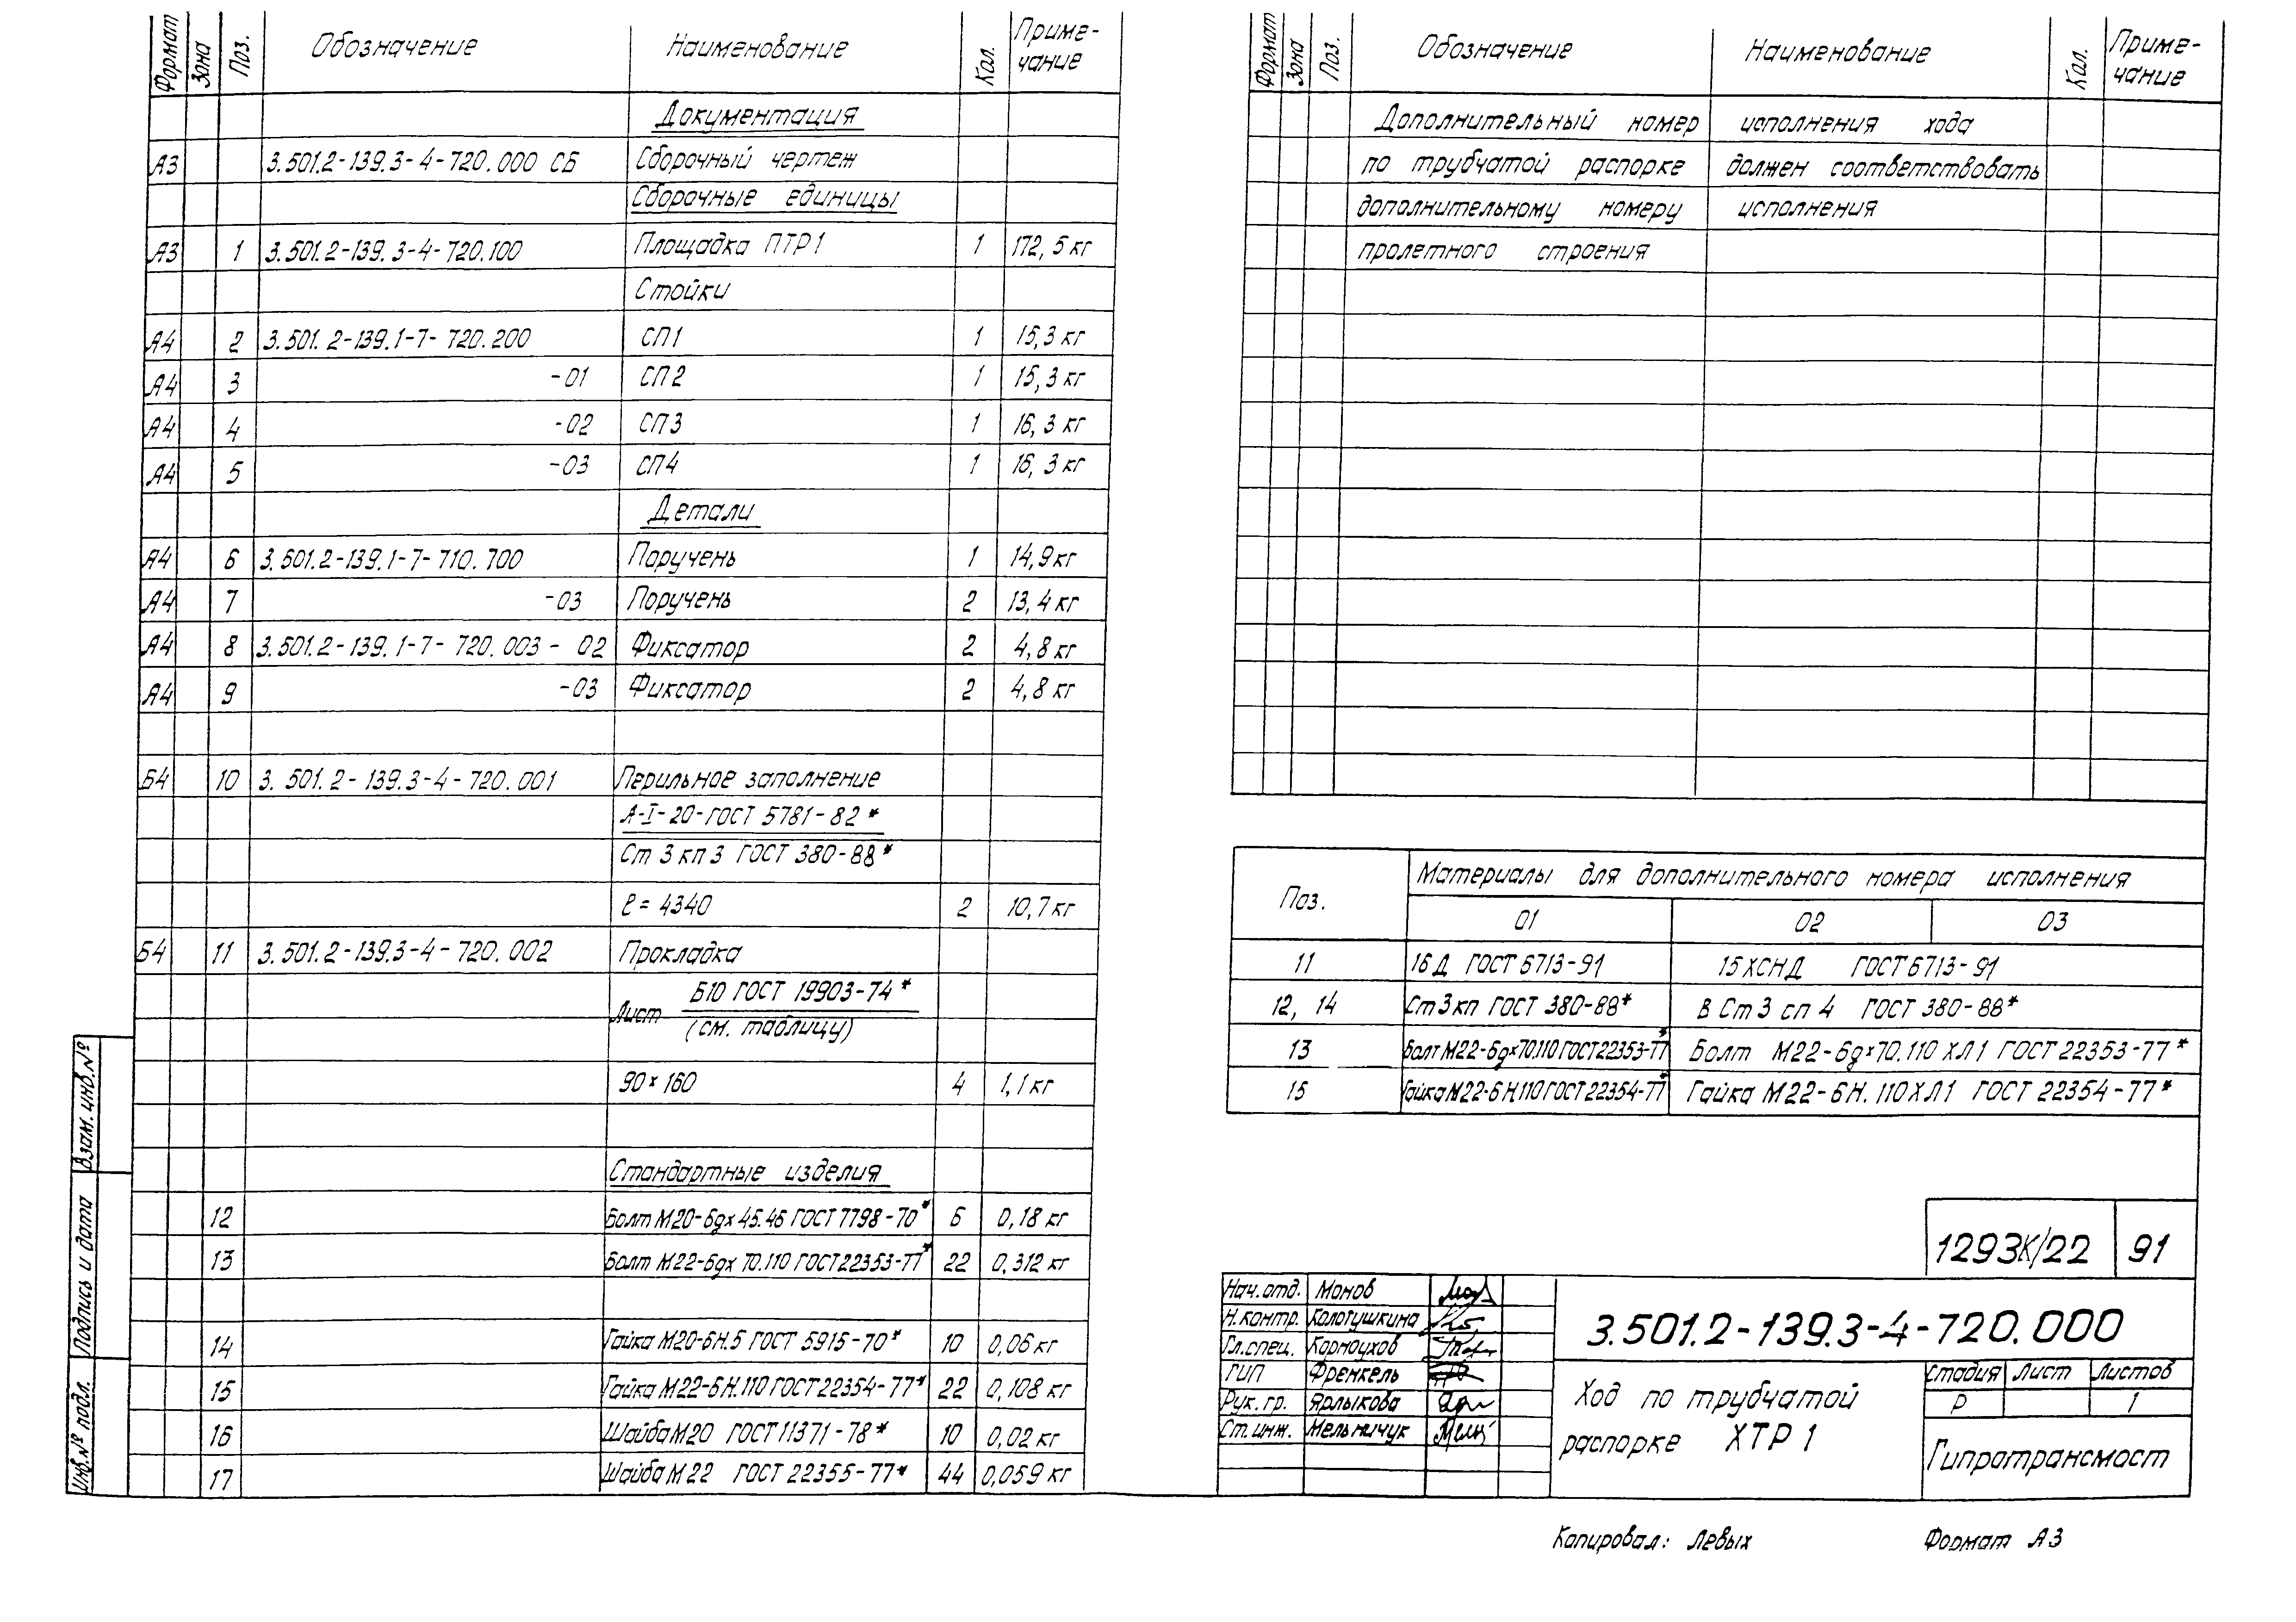 Формат Зона Поз. Обозначение Наименование Кол. Приме-
чание
Документация
А3 3.501.2-139.3-4-720.000 СБ Сборочный чертеж
Сборочные единицы
А3 1 3.501.2-139.3-4-720.100 Площадка ПТР1 1 172,5 кг
Стойки
А4 2 3.501.2-139.1-7-720.200 СП1 1 15,3 кг
А4 3 -01 СП2 1 15,3 кг
А4 4 -02 СП3 1 16,3 кг
А4 5 -03 СП4 1 16,3 кг
Детали
А4 6 3.501.2-139.1-7-710.700 Поручень 1 14,9 кг
А4 7 -03 Поручень 2 13,4 кг
А4 8 3.501.2-139.1-7-720.003-02 Фиксатор 2 4,8 кг
А4 9 -03 Фиксатор 2 4,8 кг
Б4 10 3.501.2-139.3-4-720.001 Перильное заполнение
А-I-20-ГОСТ 5781-82*
Ст 3 кп 3 ГОСТ 380-88*
ℓ = 4340 2 10,7 кг
Б4 11 3.501.2-139.3-4-720.002 Прокладка
Лист Б10 ГОСТ 19903-74*
(см. таблицу)
90×160 4 1,1 кг
Стандартные изделия
12 Болт М20-6gх45.46 ГОСТ 7798-70* 6 0,18 кг
13 Болт М22-6gх70.110 ГОСТ 22353-77* 22 0,312 кг
14 Гайка М20-6Н.5 ГОСТ 5915-70* 10 0,06 кг
15 Гайка М22-6Н.110 ГОСТ 22354-77* 22 0,108 кг
16 Шайба М20 ГОСТ 11371-78* 10 0,02 кг
17 Шайба М22 ГОСТ 22355-77* 44 0,059 кг
Взам. инв. №
Подпись и дата
Инв. № подл.
Формат Зона Поз. Обозначение Наименование Кол. Приме-
чание
Дополнительный номер исполнения хода
по трубчатой распорке должен соответствовать
дополнительному номеру исполнения
пролетного строения
Поз. Материалы для дополнительного номера исполнения
01 02 03
11 16Д ГОСТ 6713-91 15ХСНД ГОСТ 6713-91
12, 14 Ст3кп ГОСТ 380-88* В Ст 3 сп 4 ГОСТ 380-88*
13 Болт М22-6gх70.110 ГОСТ 22353-77* Болт М22-6gх70.110 ХЛ1 ГОСТ 22353-77*
15 Гайка М22-6Н.110 ГОСТ 22354-77* Гайка М22-6Н.110ХЛ1 ГОСТ 22354-77*
1293К/22 91
Нач. отд. Монов
Н. контр. Колотушкина
Гл. спец. Корноухов
ГИП Френкель
Рук. гр. Ярлыкова
Ст. инж. Мельничук
3.501.2-139.3-4-720.000
Ход по трубчатой
распорке ХТР 1
Стадия Лист Листов
Р 1
Гипротрансмост
Копировал: Левых Формат А3